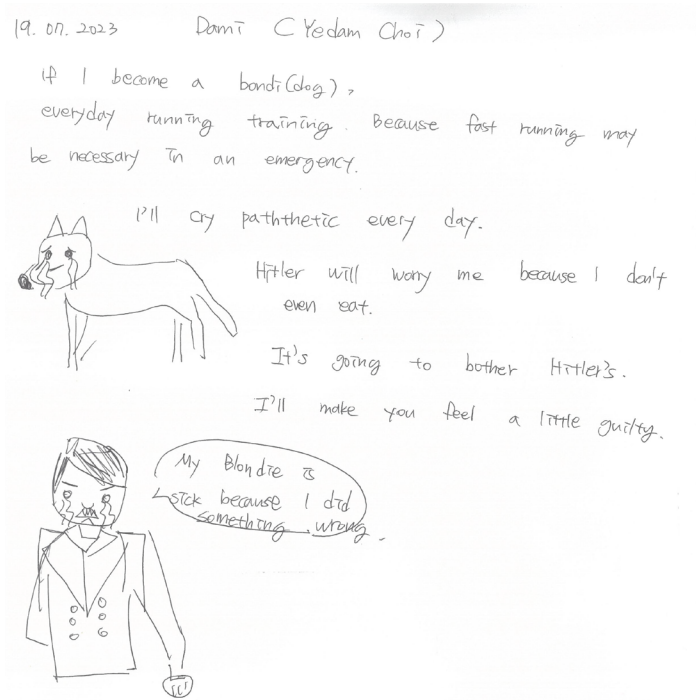 19. 07. 2023 Dami (Yedam Choi)
if I become a bondi(dog),
everyday running training. Because fast running may
be necessary in an emergency.
I'll cry paththetic every day.
Hitler will worry me because I don't
even eat.
It's going to bother Hitler's.
I'll make you feel a little guilty.
My Blondie is
sick because I did
something wrong.